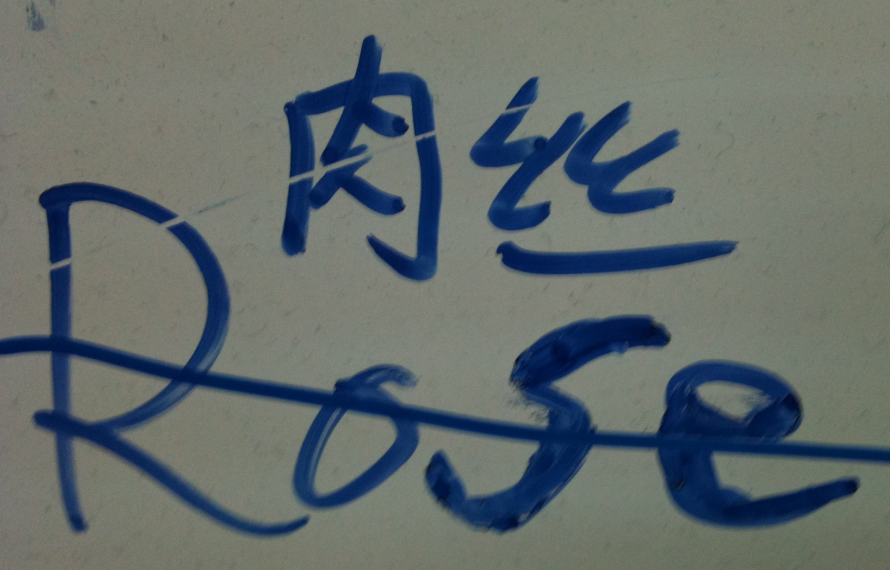 肉丝
Rose